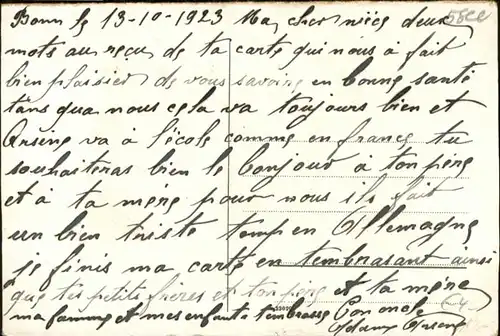 Bonn le 13-10-1923 Ma cher nièce deux
mots au reçu de ta carte qui nous à fait
bien plaisier de vous savoire en bonne santé
tans qua nous cela va toujours bien et
Arsène va à l'école comme en france tu
souhaiteras bien le bonjour à ton père
et à ta mère pour nous ils fait
un bien triste temp en Allemagne
je finis ma carte en tembrasant ainsi
que tes petits frères et ton père et ta mère
ma famme et mes enfants tembrasse Ton oncle